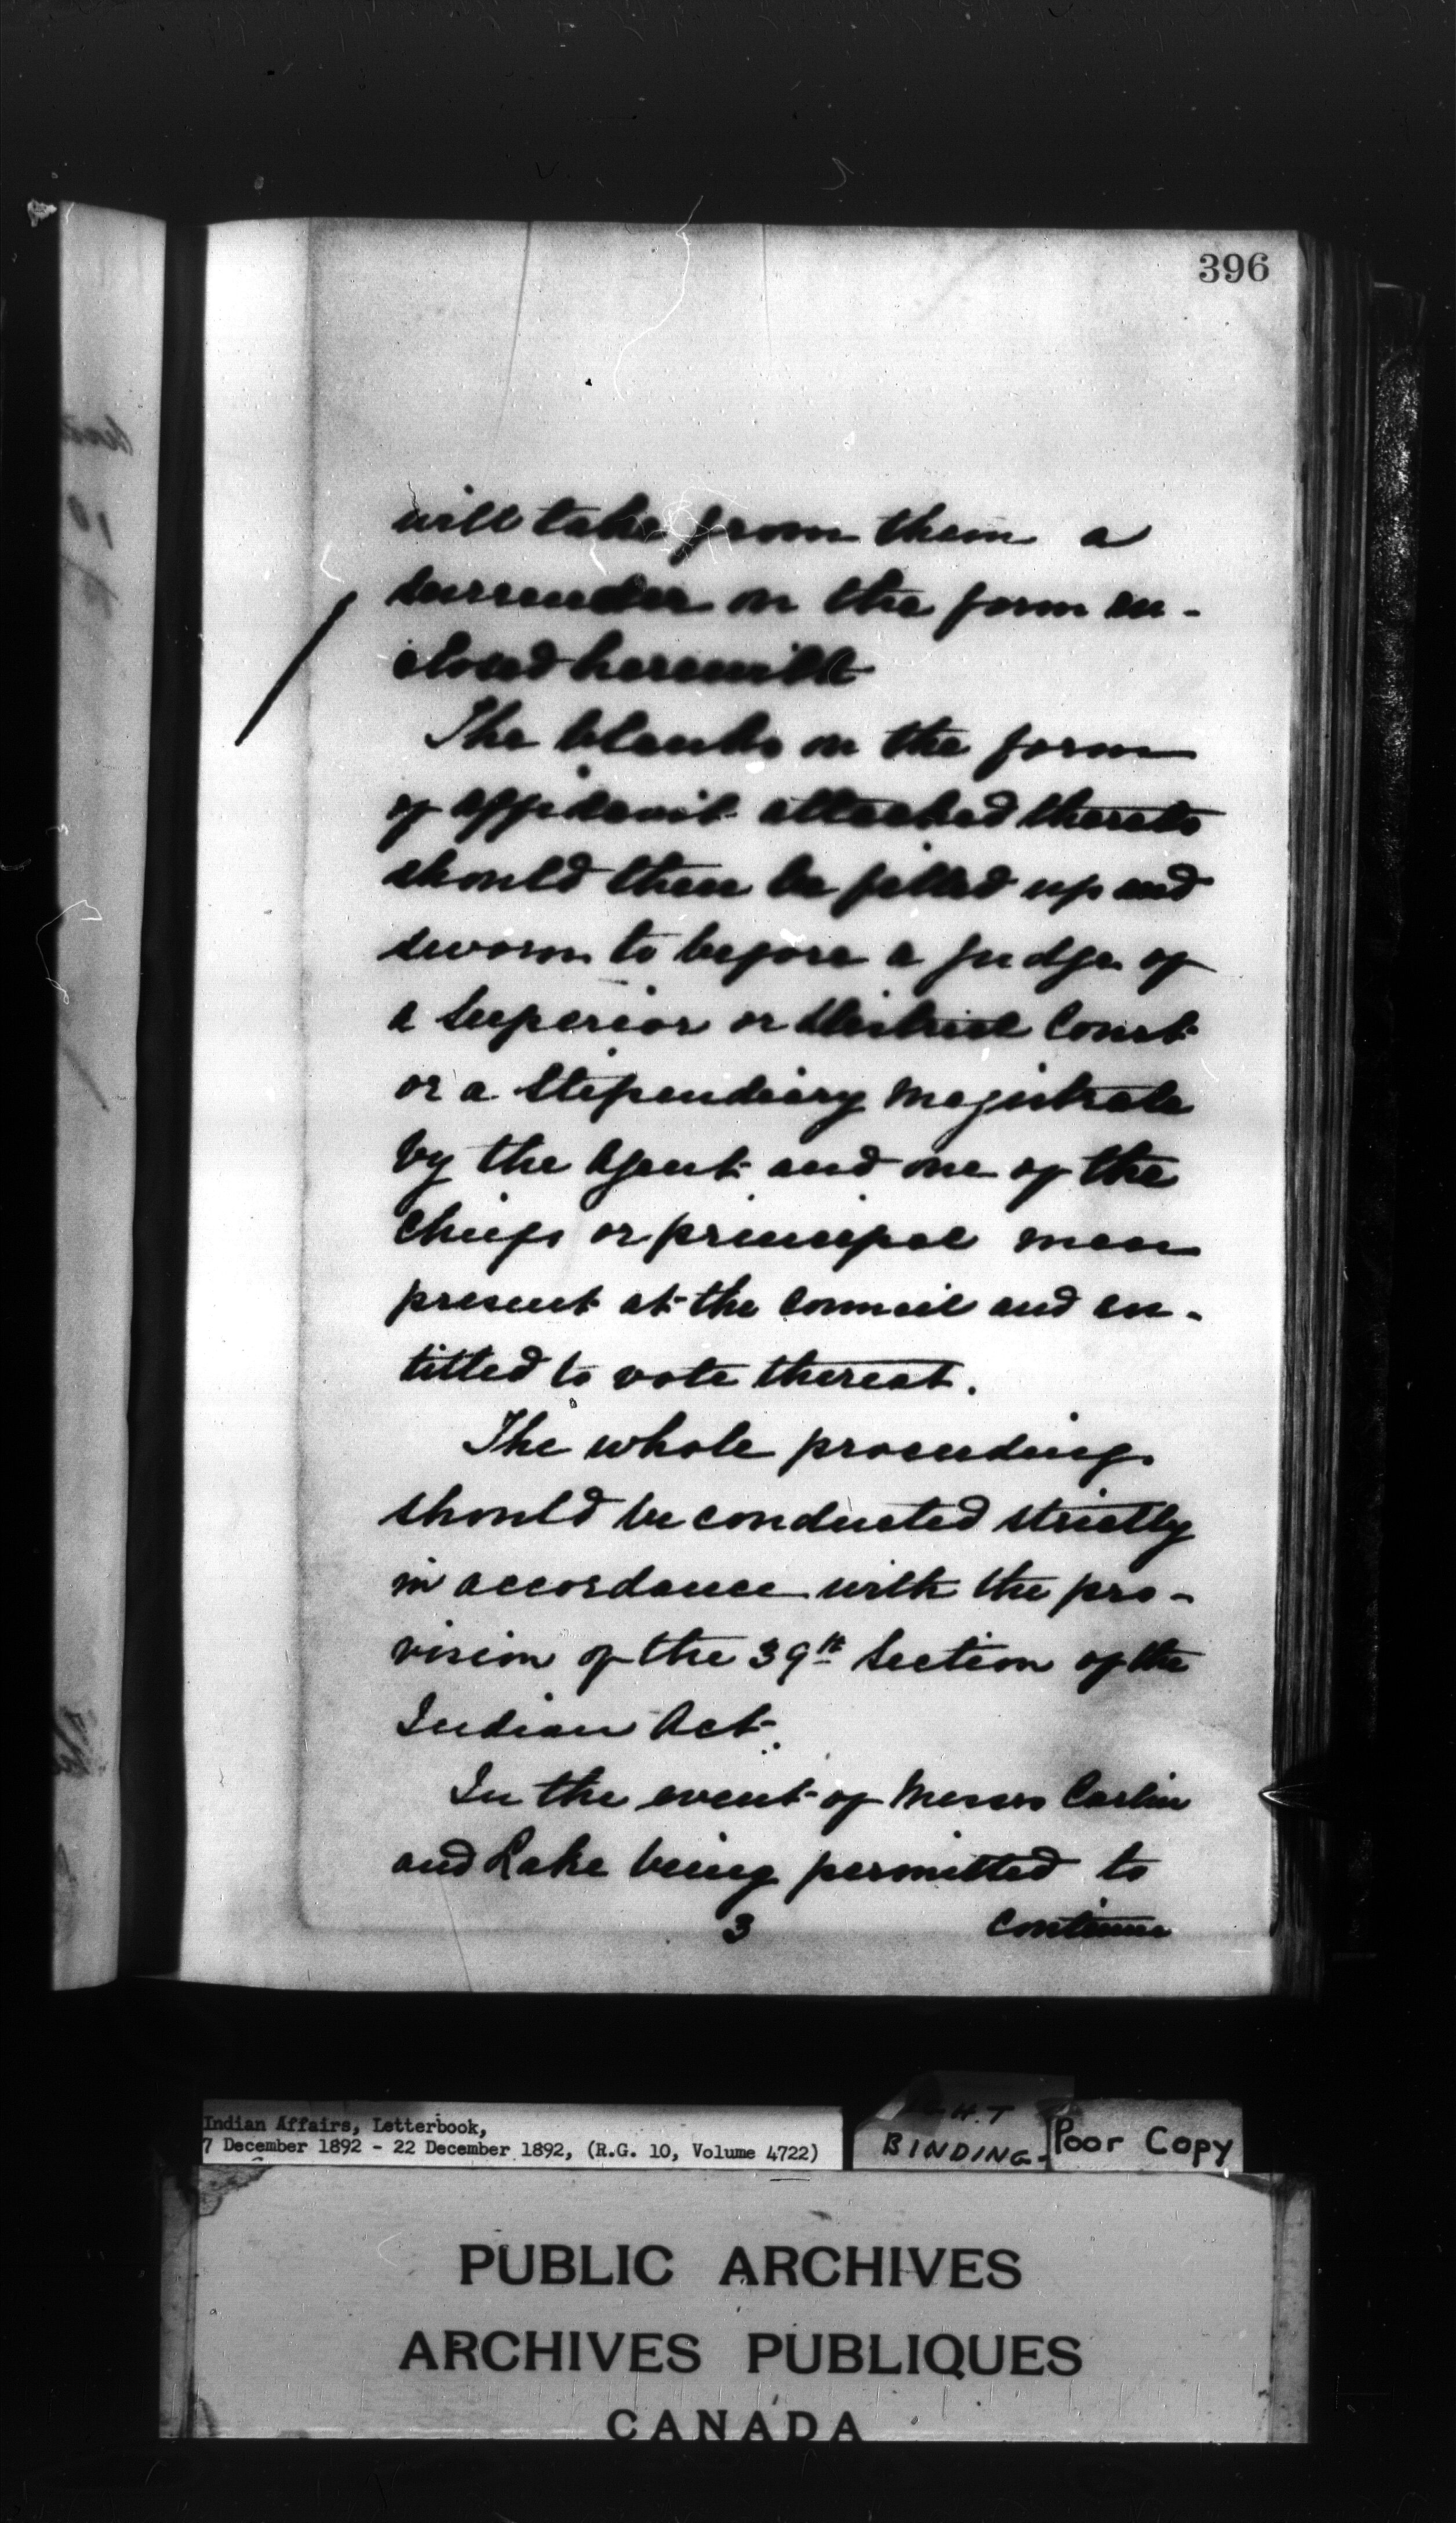 396
will take from them a
surrender on the form en-
closed herewith
The blanks on the form
of affidavit attached thereto
should then be filled up and
sworn to before a judge of
a Superior or District Court
or a Stipendiary Magistrate
by the Agent and one of the
Chiefs or principal men
present at the Council and en-
titled to vote thereat.
The whole proceeding
should be conducted strictly
in accordance with the pro-
vision of the 39th Section of the
Indian Act.
In the event of Messrs Carlin
and Lake being permitted to
3 continue
Indian Affairs, Letterbook,
7 December 1892 - 22 December 1892, (R.G. 10, Volume 4722)
BINDING-
Poor Copy
PUBLIC ARCHIVES
ARCHIVES PUBLIQUES
CANADA